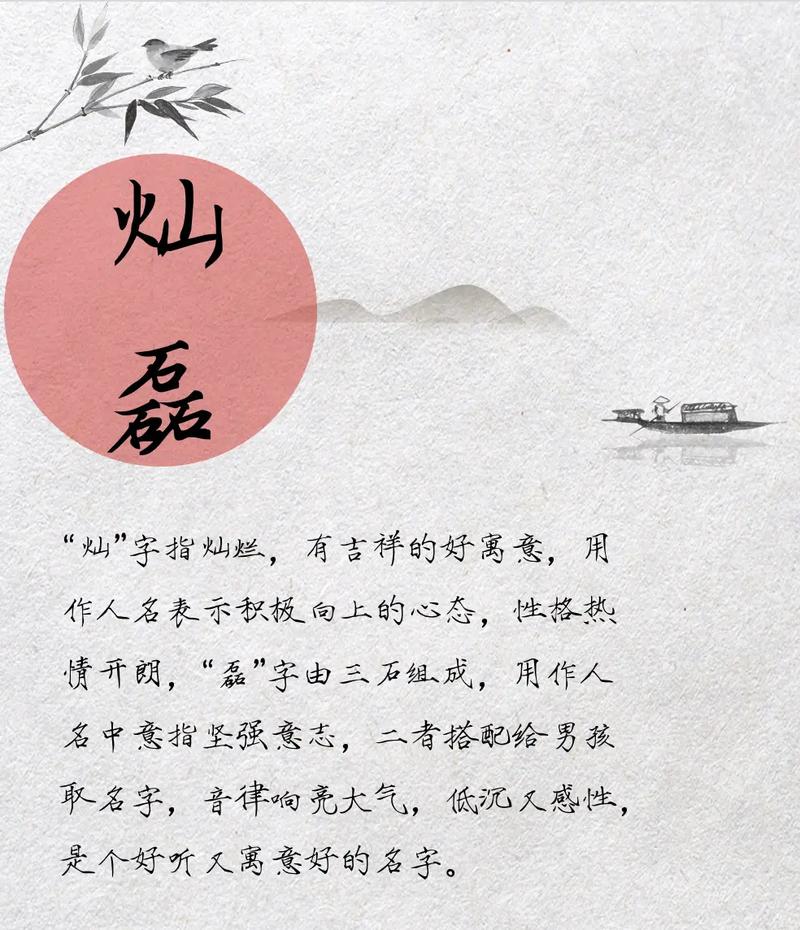 灿
磊
“灿”字指灿烂，有吉祥的好寓意，用
作人名表示积极向上的心态，性格热
情开朗，“磊”字由三石组成，用作人
名中意指坚强意志，二者搭配给男孩
取名字，音律响亮大气，低沉又感性，
是个好听又寓意好的名字。